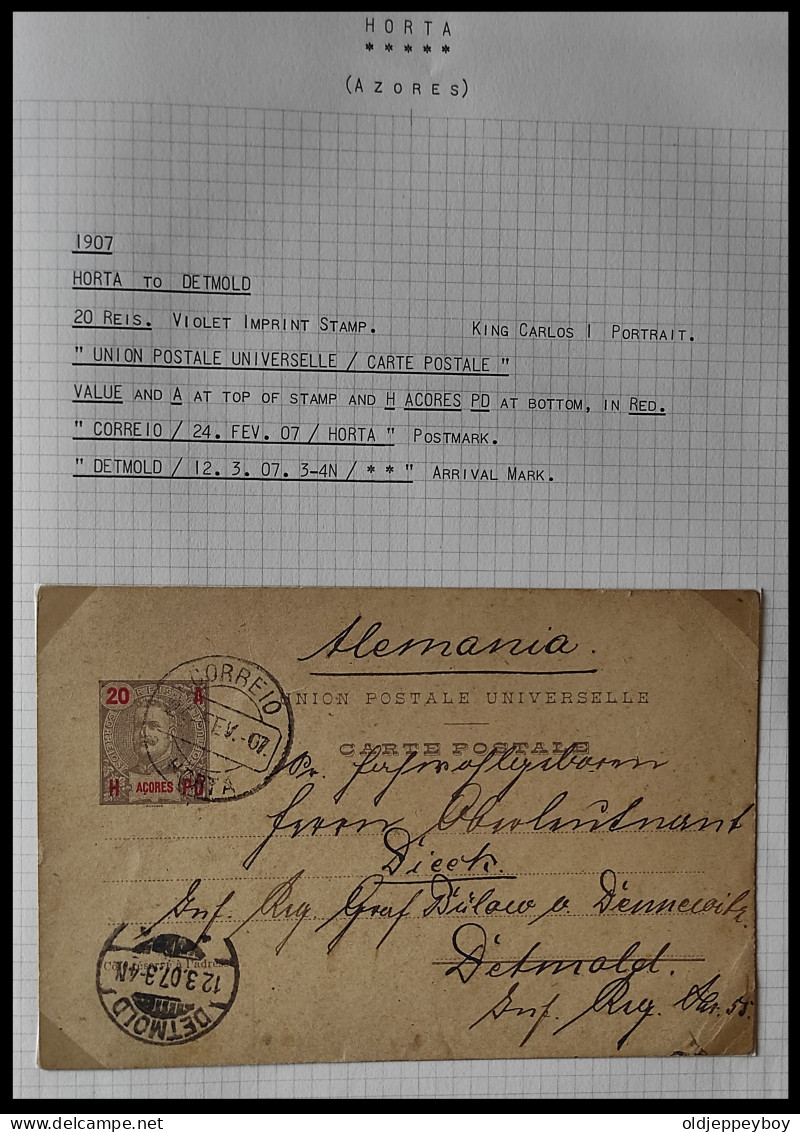 HORTA
*****
(AZORES)
1907
HORTA TO DETMOLD
20 REIS. VIOLET IMPRINT STAMP. KING CARLOS I PORTRAIT.
" UNION POSTALE UNIVERSELLE / CARTE POSTALE "
VALUE AND A AT TOP OF STAMP AND H ACORES PD AT BOTTOM, IN RED.
" CORREIO / 24. FEV. 07 / HORTA " POSTMARK.
" DETMOLD / 12. 3. 07. 3-4N / * * " ARRIVAL MARK.
Alemania.
CORREIO
FEV. -07.
HORTA
20 A
H AÇORES PD
UNION POSTALE UNIVERSELLE
CARTE POSTALE
Sr. Hochwohlgeboren
Herrn Oberleutnant
Dieck.
Inf. Reg. Graf Bülow v. Dennewitz.
Detmold.
Inf. Reg. 55.
réservé à l'adresse
12.3.07.3-4N
DETMOLD
delcampe.net
oldjeppeyboy